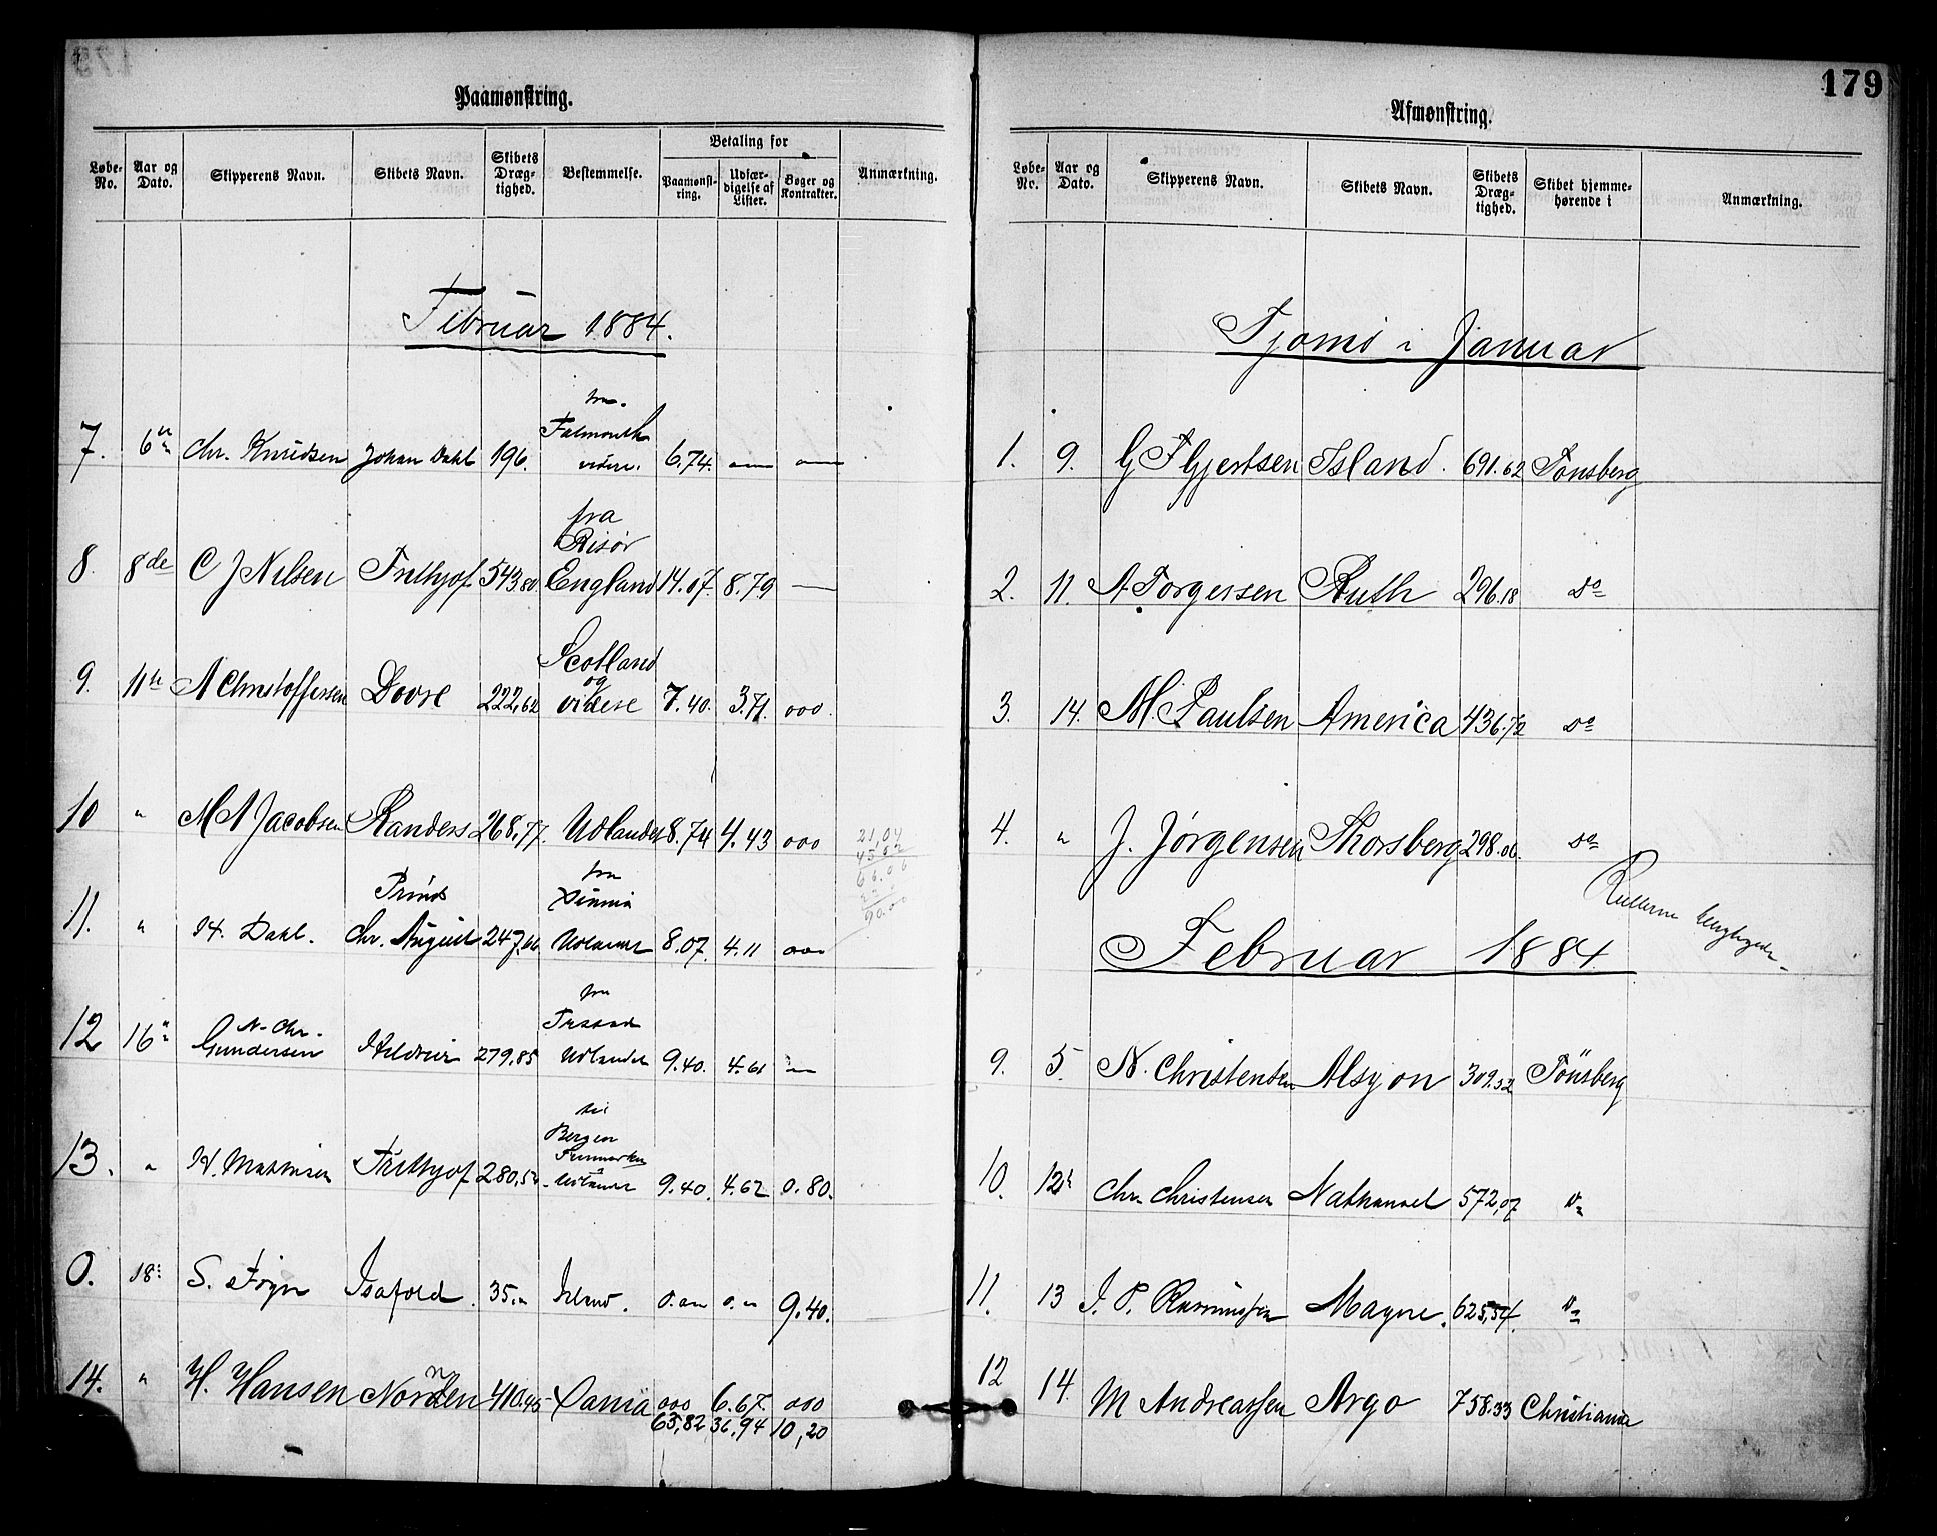 Paamønstring.
Løbe-No. Aar og Dato. Skipperens Navn. Skibets Navn. Skibets Dræg-tighed. Bestemmelse. Betaling for Paamønst-ring. Udfær-digelse af Lister. Bøger og Kontrakter. Anmærkning.
Februar 1884.
fra
Falmouth
7. 6te Chr. Knudsen Johan Dahl 196. videre. 6.74.
fra
Risør
8. 8de C J Nilsen Frithjof 543.80 England 14.07. 8.79 —
Scotland
og
9. 11te A Christoffersen Dovre 222,62 videre 7.40. 3.71. ooo
10 " M A Jacobsen Randers 268,77. Udlandet 8.74 4.43 ooo
21,04
45,02
66.06
90.00
Prinds fra
11. " H. Dahl. Chr. August 247,66 Udlandet 8.07. 4.11 ooo
N. Chr. fra
12 16de Gundersen 279,85 Udlandet 9.40. 4.61
til
Bergen
Finmarken
13. " H. Mathisen Frithjof 280,52 Udlandet 9.40. 4.62 0.80.
0. 18de S. Føyn Isafold. 35." Island. 0. 0." 9.40.
14. " H. Hansen Norden 410.45 Xania ooo 6.67. ooo
65,82 36,94 10,20
179
Afmønstring.
Løbe-No. Aar og Dato. Skipperens Navn. Skibets Navn. Skibets Dræg-tighed. Skibet hjemme-hørende i Anmærkning.
Tjømø i Januar
1. 9. G F Gjertsen Island. 691.62 Tønsberg
2. 11. A Torgersen Ruth 296.18 Do
3. 14. M. Paulsen America 436.72 Do
4. " J. Jørgensen Thorsberg 298.06. Do
Rullerne
Februar 1884
9. 5. N. Christensen Alsyon 309.52 Tönsberg
10. 12te Chr Christensen Nathanael 572,07 Do
11. 13 J. P. Rasmussen Magne. 625,54. Do
12 14. M Andreassen Argo 758.33 Christiania